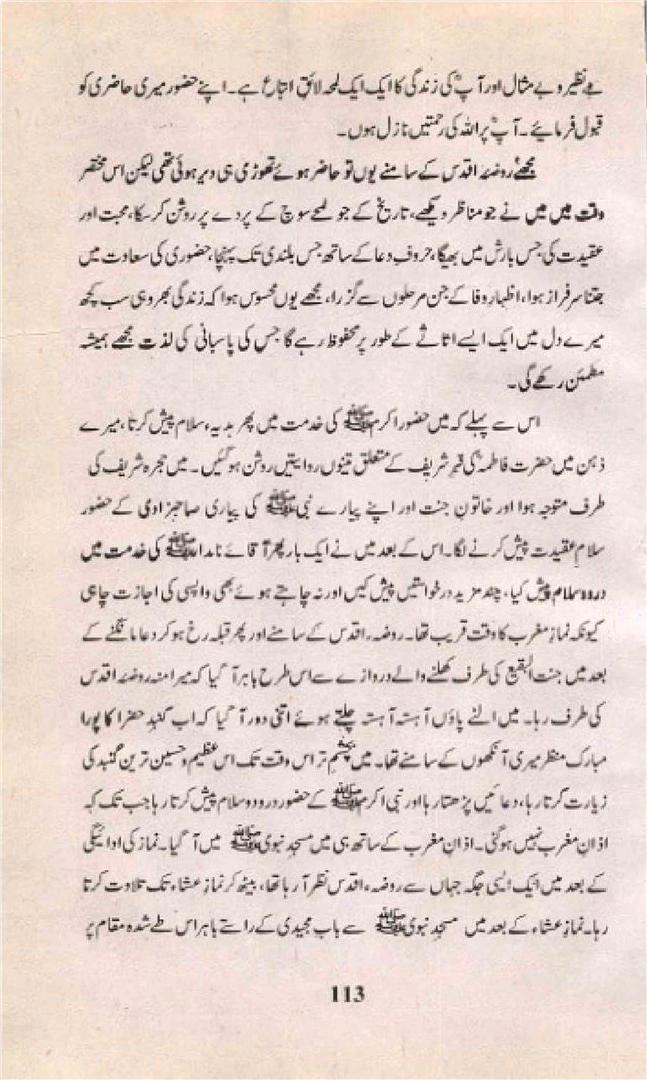 بے نظیر و بے مثال اور آپؐ کی زندگی کا ایک ایک لمحہ لائقِ اتباع ہے۔ اپنے حضور میری حاضری کو
قبول فرمائیے۔ آپؐ پر اللہ کی رحمتیں نازل ہوں۔
مجھے روضۂ اقدس کے سامنے یوں تو حاضر ہوئے تھوڑی ہی دیر ہوئی تھی لیکن اس مختصر
وقت میں میں نے جو مناظر دیکھے، تاریخ کے جو لمحے سوچ کے پردے پر روشن کر سکا، محبت اور
عقیدت کی جس بارش میں بھیگا، حروفِ دعا کے ساتھ جس بلندی تک پہنچا، حضوری کی سعادت میں
جتنا سرفراز ہوا، اظہارِ وفا کے جن مرحلوں سے گزرا، مجھے یوں محسوس ہوا کہ زندگی بھر وہی سب کچھ
میرے دل میں ایک ایسے اثاثے کے طور پر محفوظ رہے گا جس کی پاسبانی کی لذت مجھے ہمیشہ
مطمئن رکھے گی۔
اس سے پہلے کہ میں حضور اکرم ﷺ کی خدمت میں پھر ہدیہء سلام پیش کرتا، میرے
ذہن میں حضرت فاطمہؓ کی قبر شریف کے متعلق تینوں روایتیں روشن ہو گئیں۔ میں حجرہ شریف کی
طرف متوجہ ہوا اور خاتونِ جنت اور اپنے پیارے نبی ﷺ کی پیاری صاحبزادی کے حضور
سلامِ عقیدت پیش کرنے لگا۔ اس کے بعد میں نے ایک بار پھر آقائے نامدار ﷺ کی خدمت میں
درود و سلام پیش کیا، چند مزید درخواستیں پیش کیں اور نہ چاہتے ہوئے بھی واپسی کی اجازت چاہی
کیونکہ نمازِ مغرب کا وقت قریب تھا۔ روضہء اقدس کے سامنے اور پھر قبلہ رخ ہو کر دعا مانگنے کے
بعد میں جنت البقیع کی طرف کھلنے والے دروازے سے اس طرح باہر آ گیا کہ میرا منہ روضۂ اقدس
کی طرف رہا۔ میں الٹے پاؤں آہستہ آہستہ چلتے ہوئے اتنی دور آ گیا کہ اب گنبدِ خضرا کا پورا
مبارک منظر میری آنکھوں کے سامنے تھا۔ میں بچشمِ تر اس وقت تک اس عظیم و حسین ترین گنبد کی
زیارت کرتا رہا، دعائیں پڑھتا رہا اور نبی اکرم ﷺ کے حضور درود و سلام پیش کرتا رہا جب تک کہ
اذانِ مغرب نہیں ہو گئی۔ اذانِ مغرب کے ساتھ ہی میں مسجدِ نبوی ﷺ میں آ گیا۔ نماز کی ادائیگی
کے بعد میں ایک ایسی جگہ جہاں سے روضہء اقدس نظر آ رہا تھا، بیٹھ کر نمازِ عشاء تک تلاوت کرتا
رہا۔ نمازِ عشاء کے بعد میں مسجدِ نبوی ﷺ سے باب مجیدی کے راستے باہر اس طے شدہ مقام پر
113